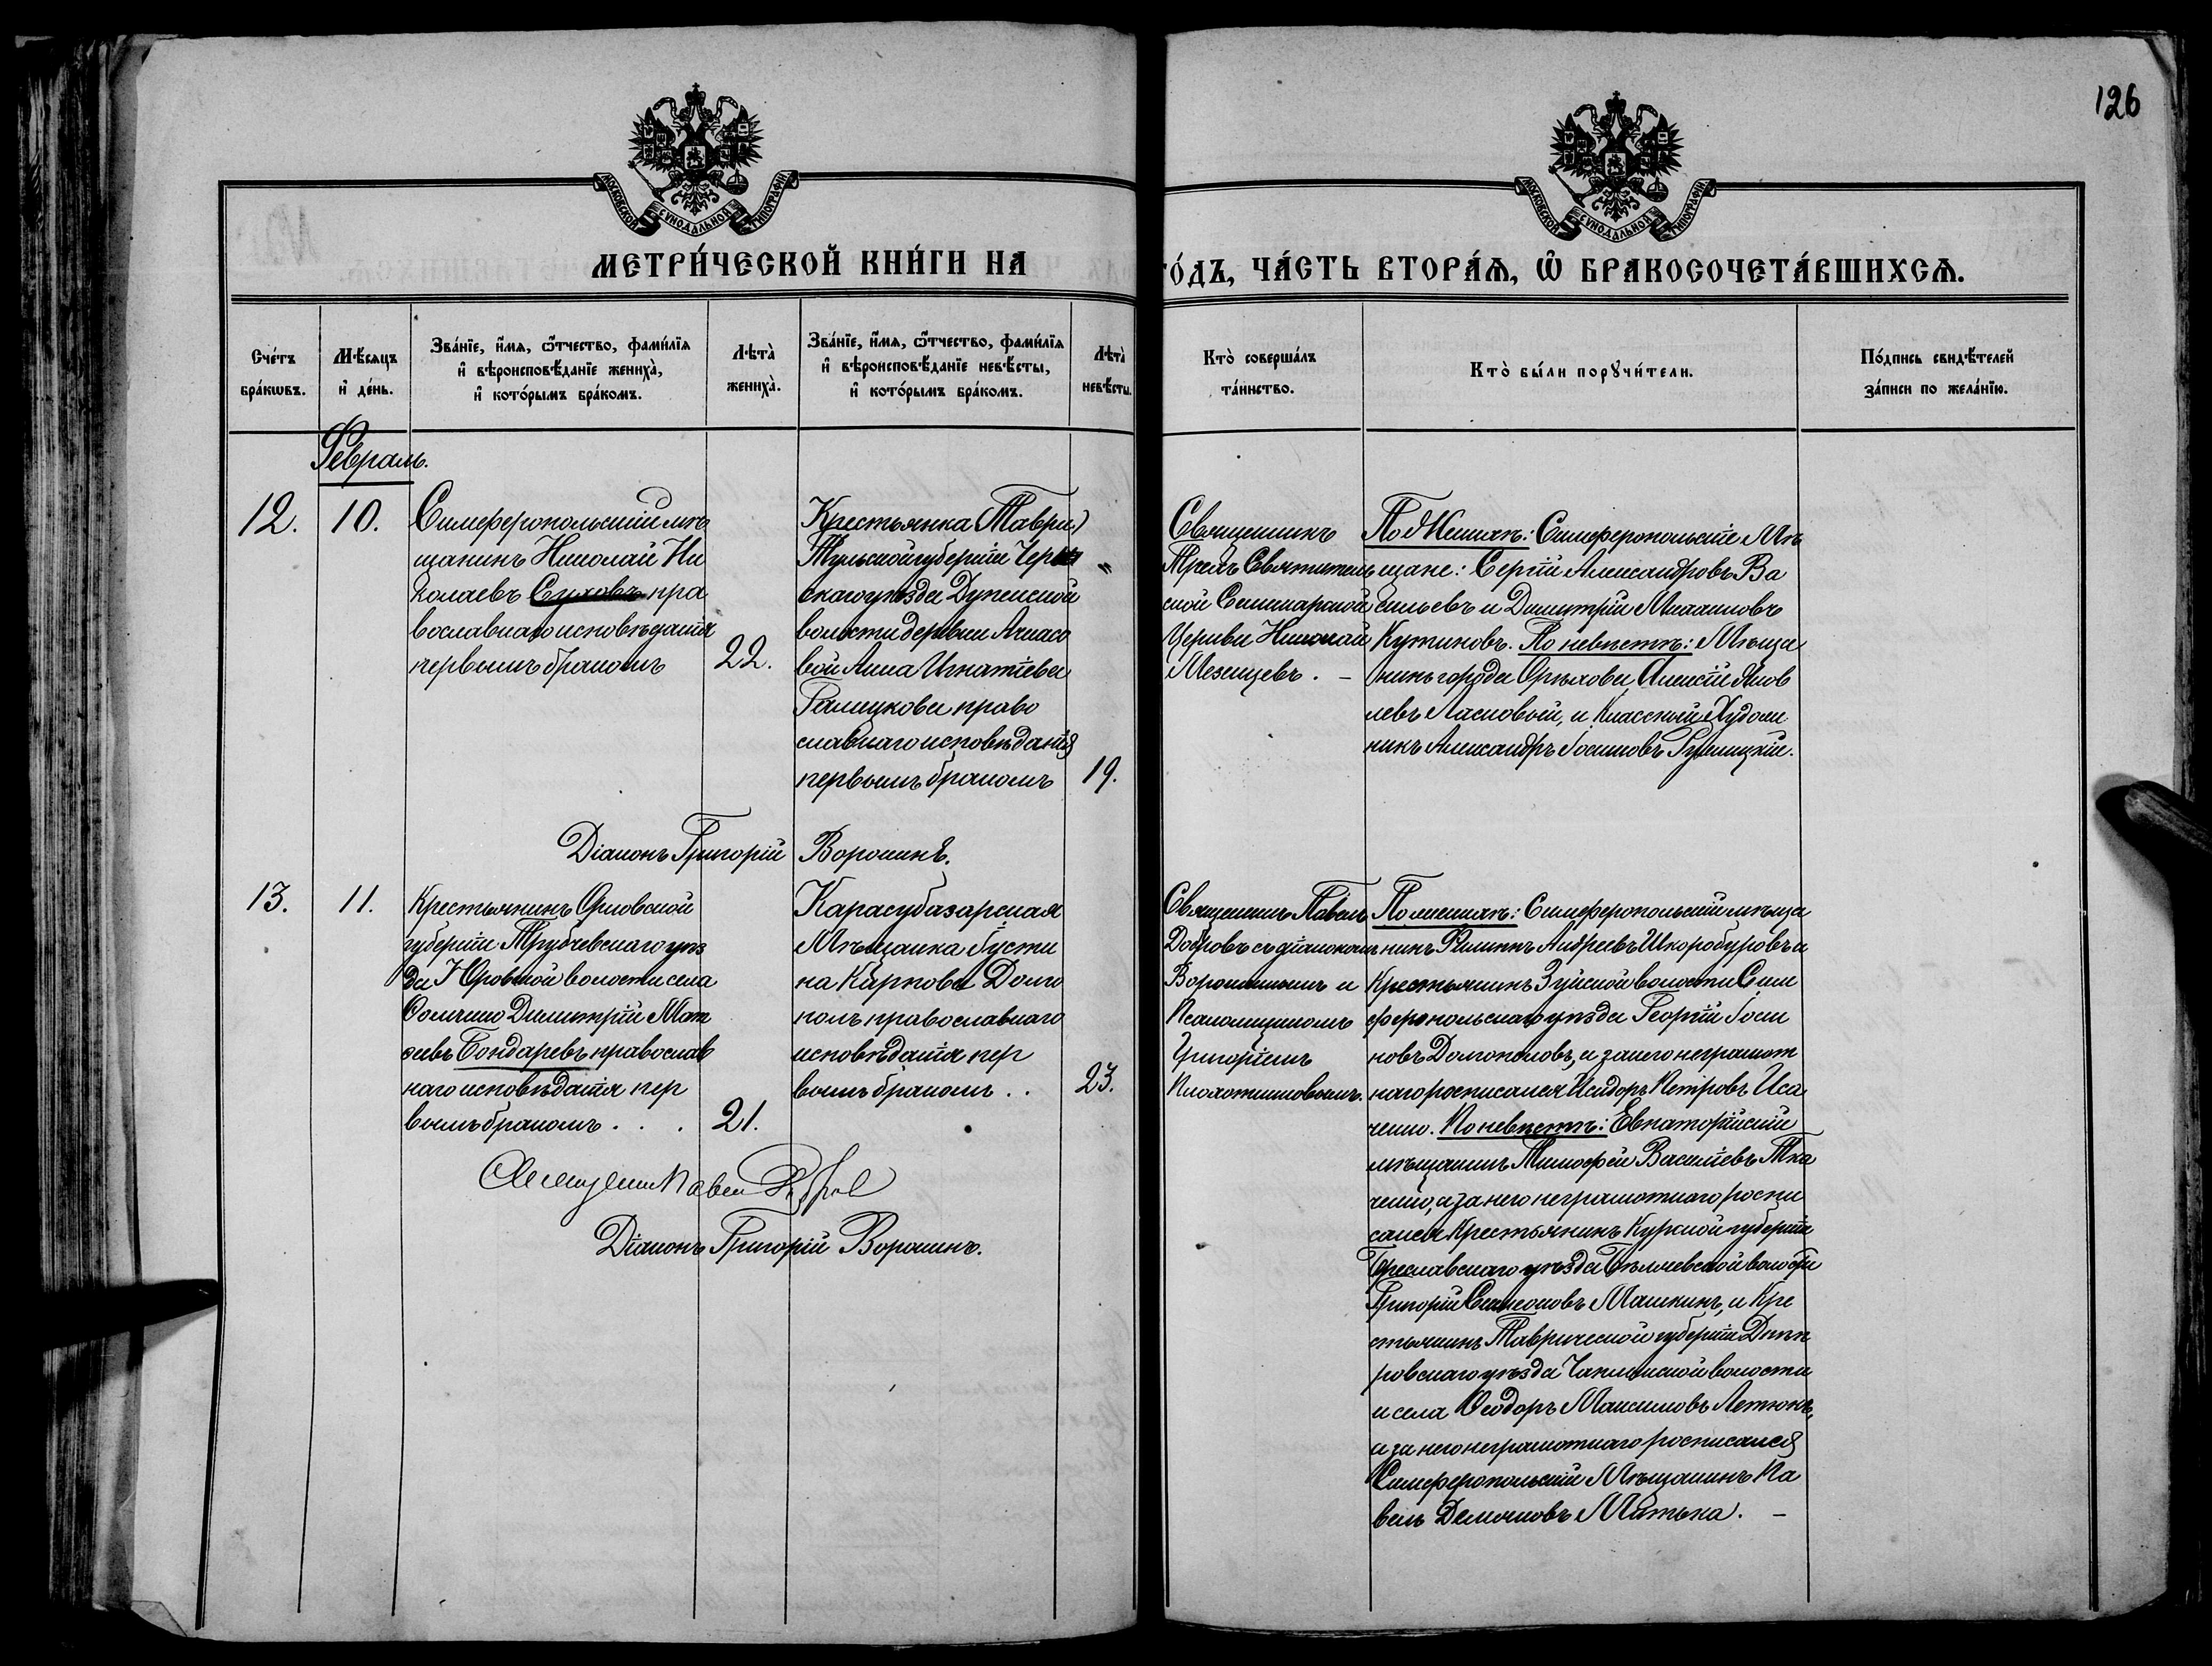 126
МОСКОВСКОЙ СѴНОДАЛЬНОЙ ТИПОГРАФІИ
МОСКОВСКОЙ СѴНОДАЛЬНОЙ ТИПОГРАФІИ
МЕТРИ́ЧЕСКОЙ КНИ́ГИ НА
ГО́ДЪ, ЧА́СТЬ ВТОРА́Ѧ, Ѽ БРАКОСОЧЕТА́ВШИХСѦ.
Сче́тъ
бра́кѡвъ.
Мѣ́сяцъ
и҆ де́нь.
Зва́нїе, и҆́мѧ, ѻ҆́тчество, фами́лїѧ
и҆ вѣроисповѣ́данїе жениха̀,
и҆ кото́рымъ бра́комъ.
Лѣта̀
жениха̀.
Зва́нїе, и҆́мѧ, ѻ҆́тчество, фами́лїѧ
и҆ вѣроисповѣ́данїе невѣ́сты,
и҆ кото́рымъ бра́комъ.
Лѣта̀
невѣ́сты.
Кто̀ соверша́лъ
та́инство.
Кто̀ бы́ли порꙋчи́тели.
По́дпись свидѣ́телей
за́писи по жела́нїю.
Февраль.
12.
10.
Симферопольскій мѣ
щанинъ Николай Ни
колаевъ Суховъ пра
вославнаго исповѣданія
первымъ бракомъ
22.
Крестьянка (Таври)
Тульской губерніи Черн
скаго уѣзда Дупенской
волости деревни
вой Анна Игнатіева
право
славнаго исповѣданія
первымъ бракомъ
19.
Священникъ
Трехъ Святитель
ской Семинарской
Церкви Николай
Мезенцевъ. –
По Женихѣ: Симферопольскіе Мѣ
щане: Сергій Александровъ Ва
сильевъ и Димитрій Михаиловъ
Кутиковъ. По невѣстѣ: Мѣща
нинъ города Орѣхова Алексій Яков
левъ Ласковый, и Классный Худож
никъ Александръ Іосифовъ
Діаконъ Григорій Воронинъ.
13.
11.
Крестьянинъ Орловской
губерніи Трубчевскаго уѣз
да Юровской волости села
Солчино Димитрій Мат
ѳевъ Бондаревъ православ
наго исповѣданія пер
вымъ бракомъ . . .
21.
Карасубазарская
Мѣщанка Іусти
на Карпова Долго
полъ православнаго
исповѣданія пер
вымъ бракомъ . .
23.
Священникъ Павелъ
Добровъ съ діакономъ
Воронинымъ и
Псаломщикомъ
Григоріемъ
Плохотниковымъ.
По женихѣ: Симферопольскій мѣща
нинъ Филиппъ Андреевъ Шкоробуровъ и
Крестьянинъ Зуйской волости Сим
феропольскаго уѣзда Георгій Іоси
новъ Долгополовъ, и за него неграмот
наго росписался Исидоръ Петровъ Иса
ченко. По невѣстѣ: Евпаторійскій
мѣщанинъ Тимоѳей Василіевъ Тка
ченко, и за него неграмотнаго роспи
сался Крестьянинъ Курской губерніи
уѣзда волости
Григорій Симеоновъ Машкинъ, и Кре
стьянинъ Таврической губерніи Днѣп
ровскаго уѣзда Чаплинской волости
и села Ѳеодоръ Максимовъ Летюкъ,
и за него неграмотнаго росписался
Симферопольскій Мѣщанинъ Па
велъ Демьяновъ Матька. –
Священникъ Павелъ Добровъ
Діаконъ Григорій Воронинъ.